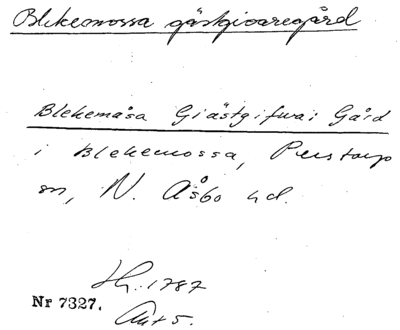 Blekemossa gästgivaregård
Blekemåsa Giästgifwai Gård
i Blekemossa, Perstorp
sn, N. Åsbo hd.
Hr. 1787
Nr 7327.
Akt 5.